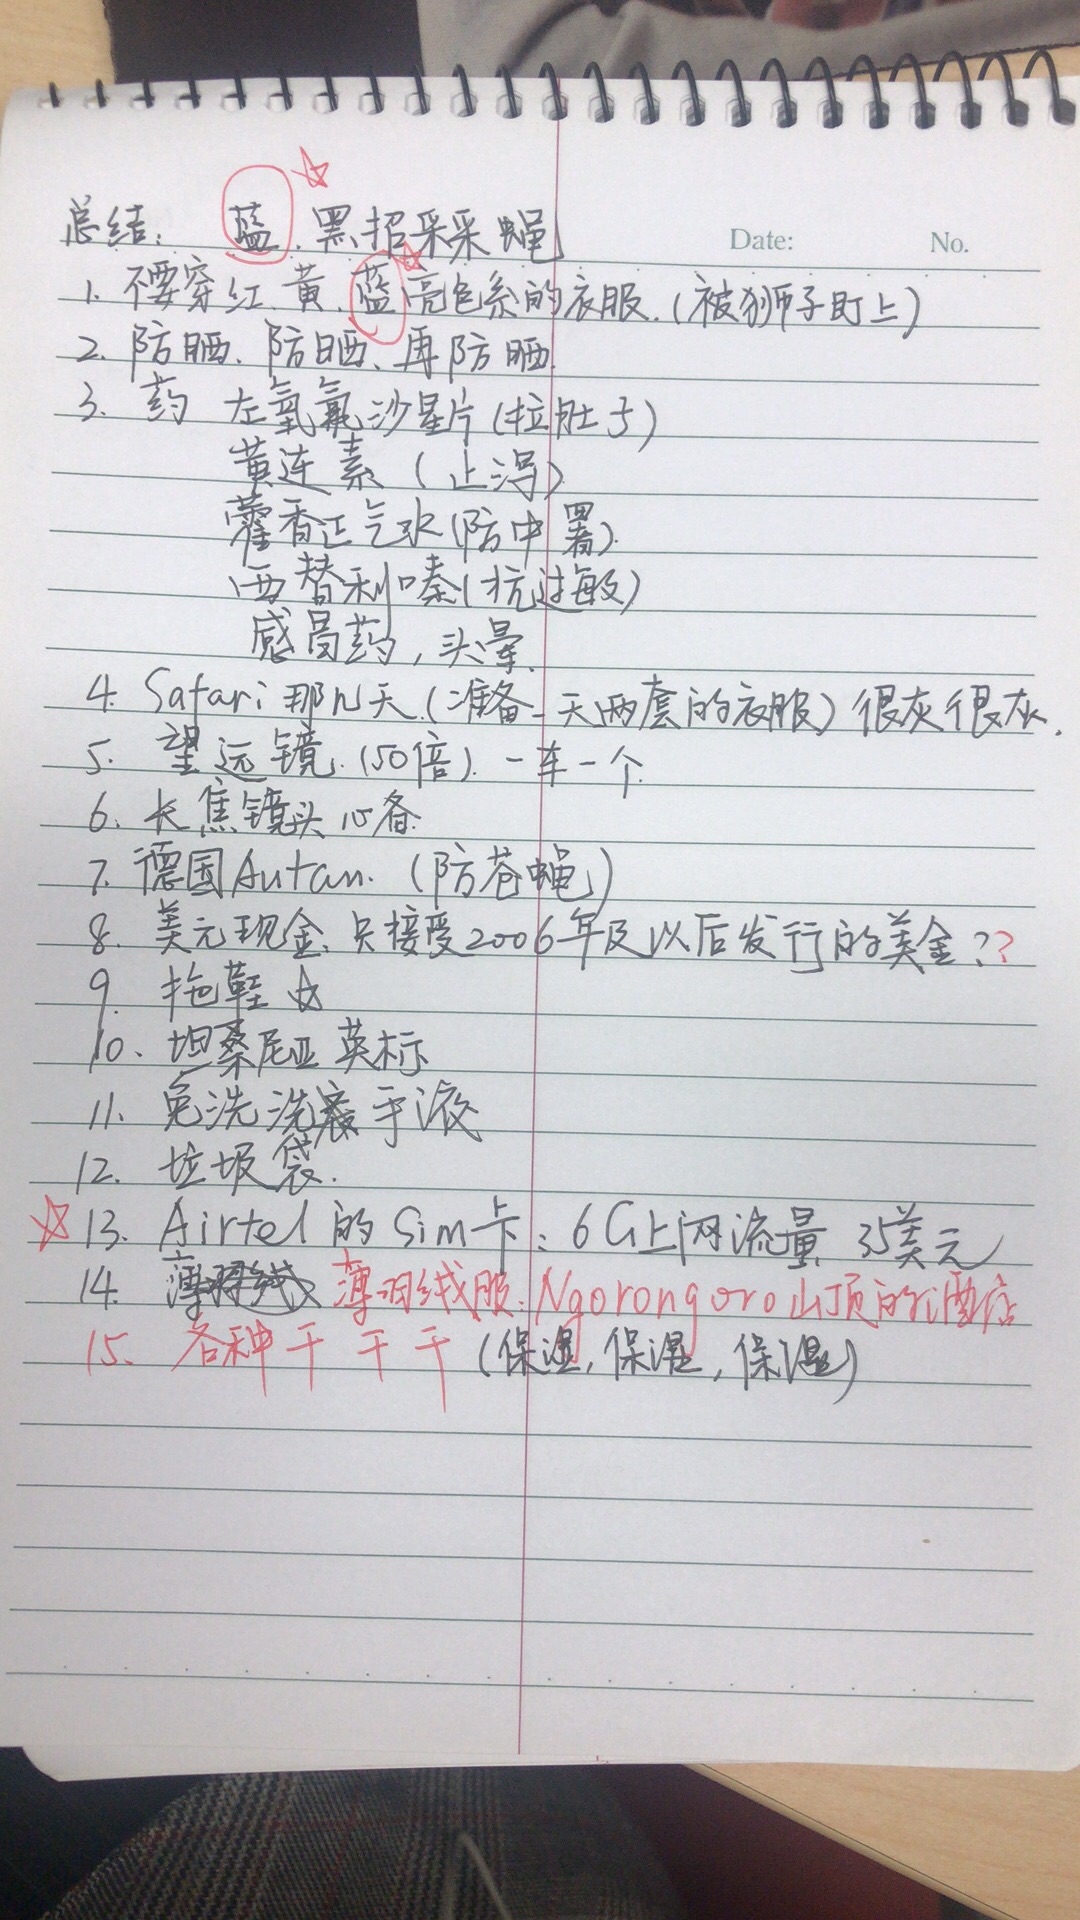 总结: 蓝、黑招采采蝇
Date: No.
1. 不要穿红、黄、蓝亮色系的衣服.(被狮子盯上)
2. 防晒、防晒、再防晒.
3. 药 左氧氟沙星片(拉肚子)
黄连素 (止泻)
藿香正气水(防中暑).
西替利嗪(抗过敏)
感冒药, 头晕.
4. Safari那几天.(准备一天两套的衣服)很灰很灰.
5. 望远镜.(50倍). 一车一个
6. 长焦镜头必备.
7. 德国Autan. (防苍蝇)
8. 美元现金、只接受2006年及以后发行的美金??
9. 拖鞋 ☆
10. 坦桑尼亚英标
11. 免洗洗手液
12. 垃圾袋.
☆13. Airtel的Sim卡: 6G上网流量 35美元
14. 薄羽绒服. Ngorongoro山顶的酒店
15. 各种干 干 干 (保湿, 保湿, 保湿)